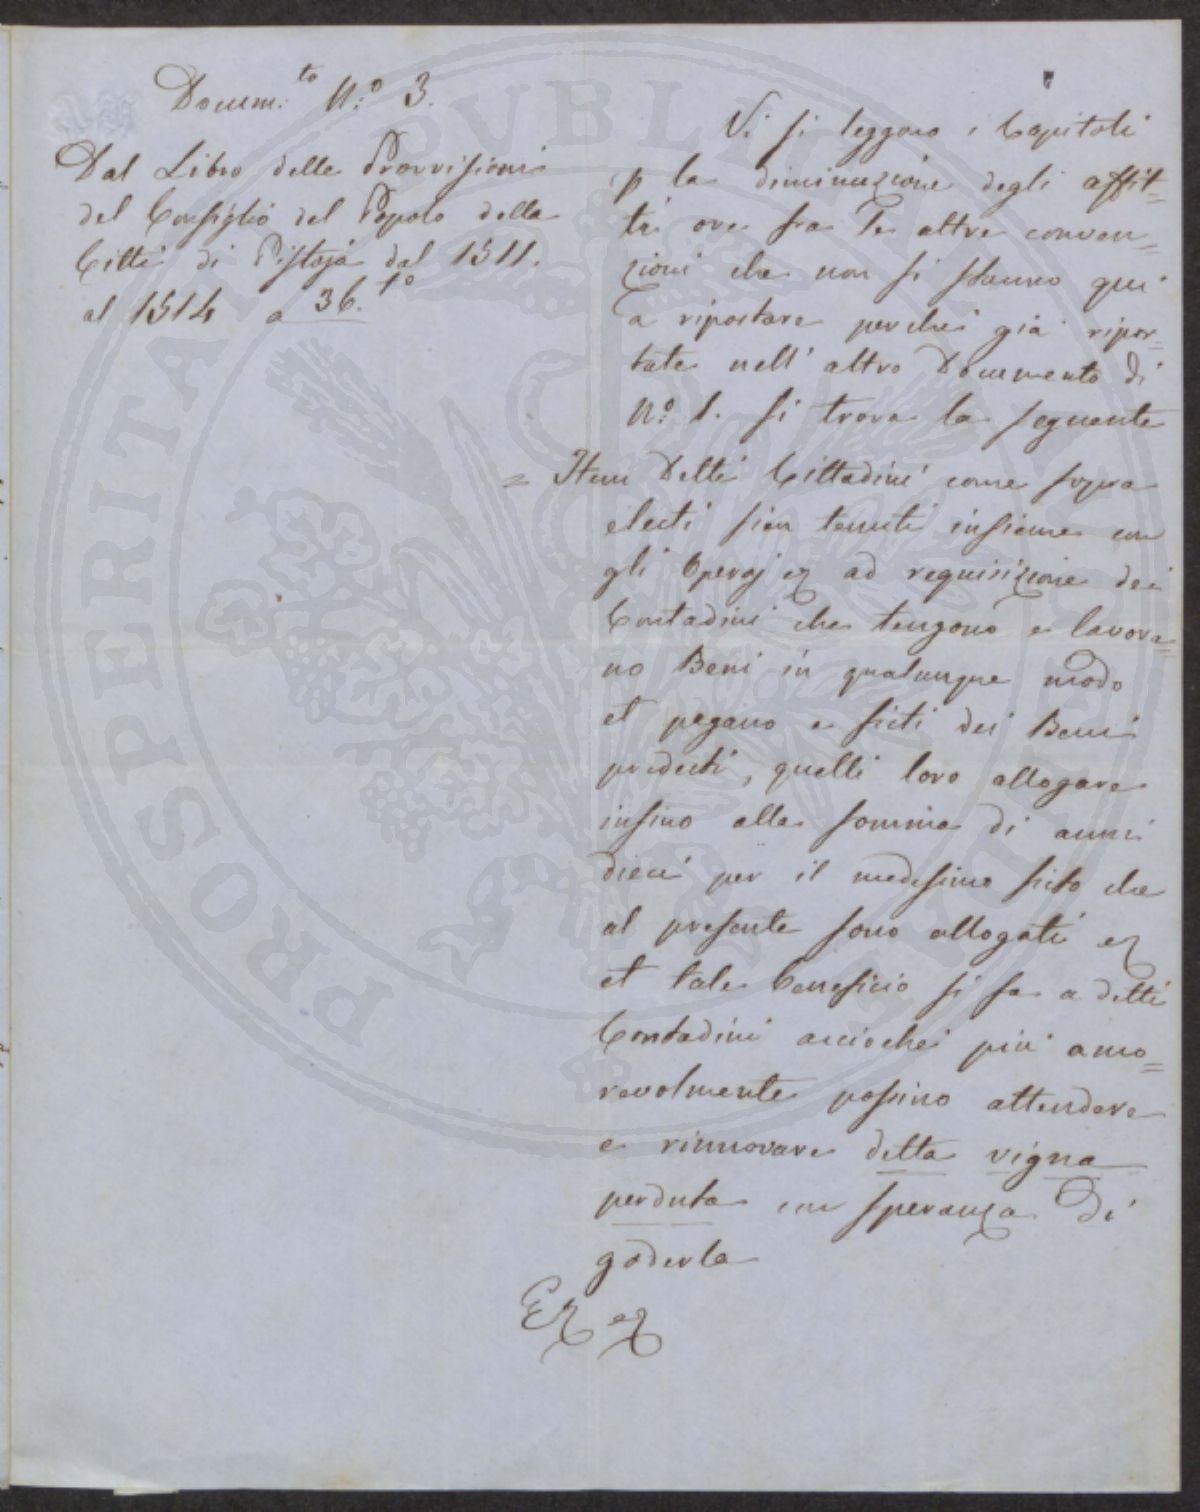 Docum.to N.o 3.
Dal Libro delle Provvisioni
del Consiglio del Popolo della
Città di Pistoja dal 1511.
al 1514 a 36.to
Vi si leggono i Capitoli
p la diminuzione degli affit=
ti ove fra le altre conven=
zioni che non si stanno qui
a riportare perchè già ripor=
tate nell' altro Documento di
N.o 1. si trova la seguente
= Item Detti Cittadini come sopra
electi sien tenuti insieme con
gli Operaj ec ad requisizione dei
Contadini che tengono e lavora=
no Beni in qualunque modo
et pagano e ficti dei Beni
predecti, quelli loro allogare
insino alla somma di anni
dieci per il medesimo ficto che
al presente sono allogati ec
et tale beneficio si fa a detti
Contadini acciochè più amo=
revolmente possino attendere
e rinnovare detta vigna
perduta con speranza di
goderla
Ec ec
PROSPERITATI PVBLICAE